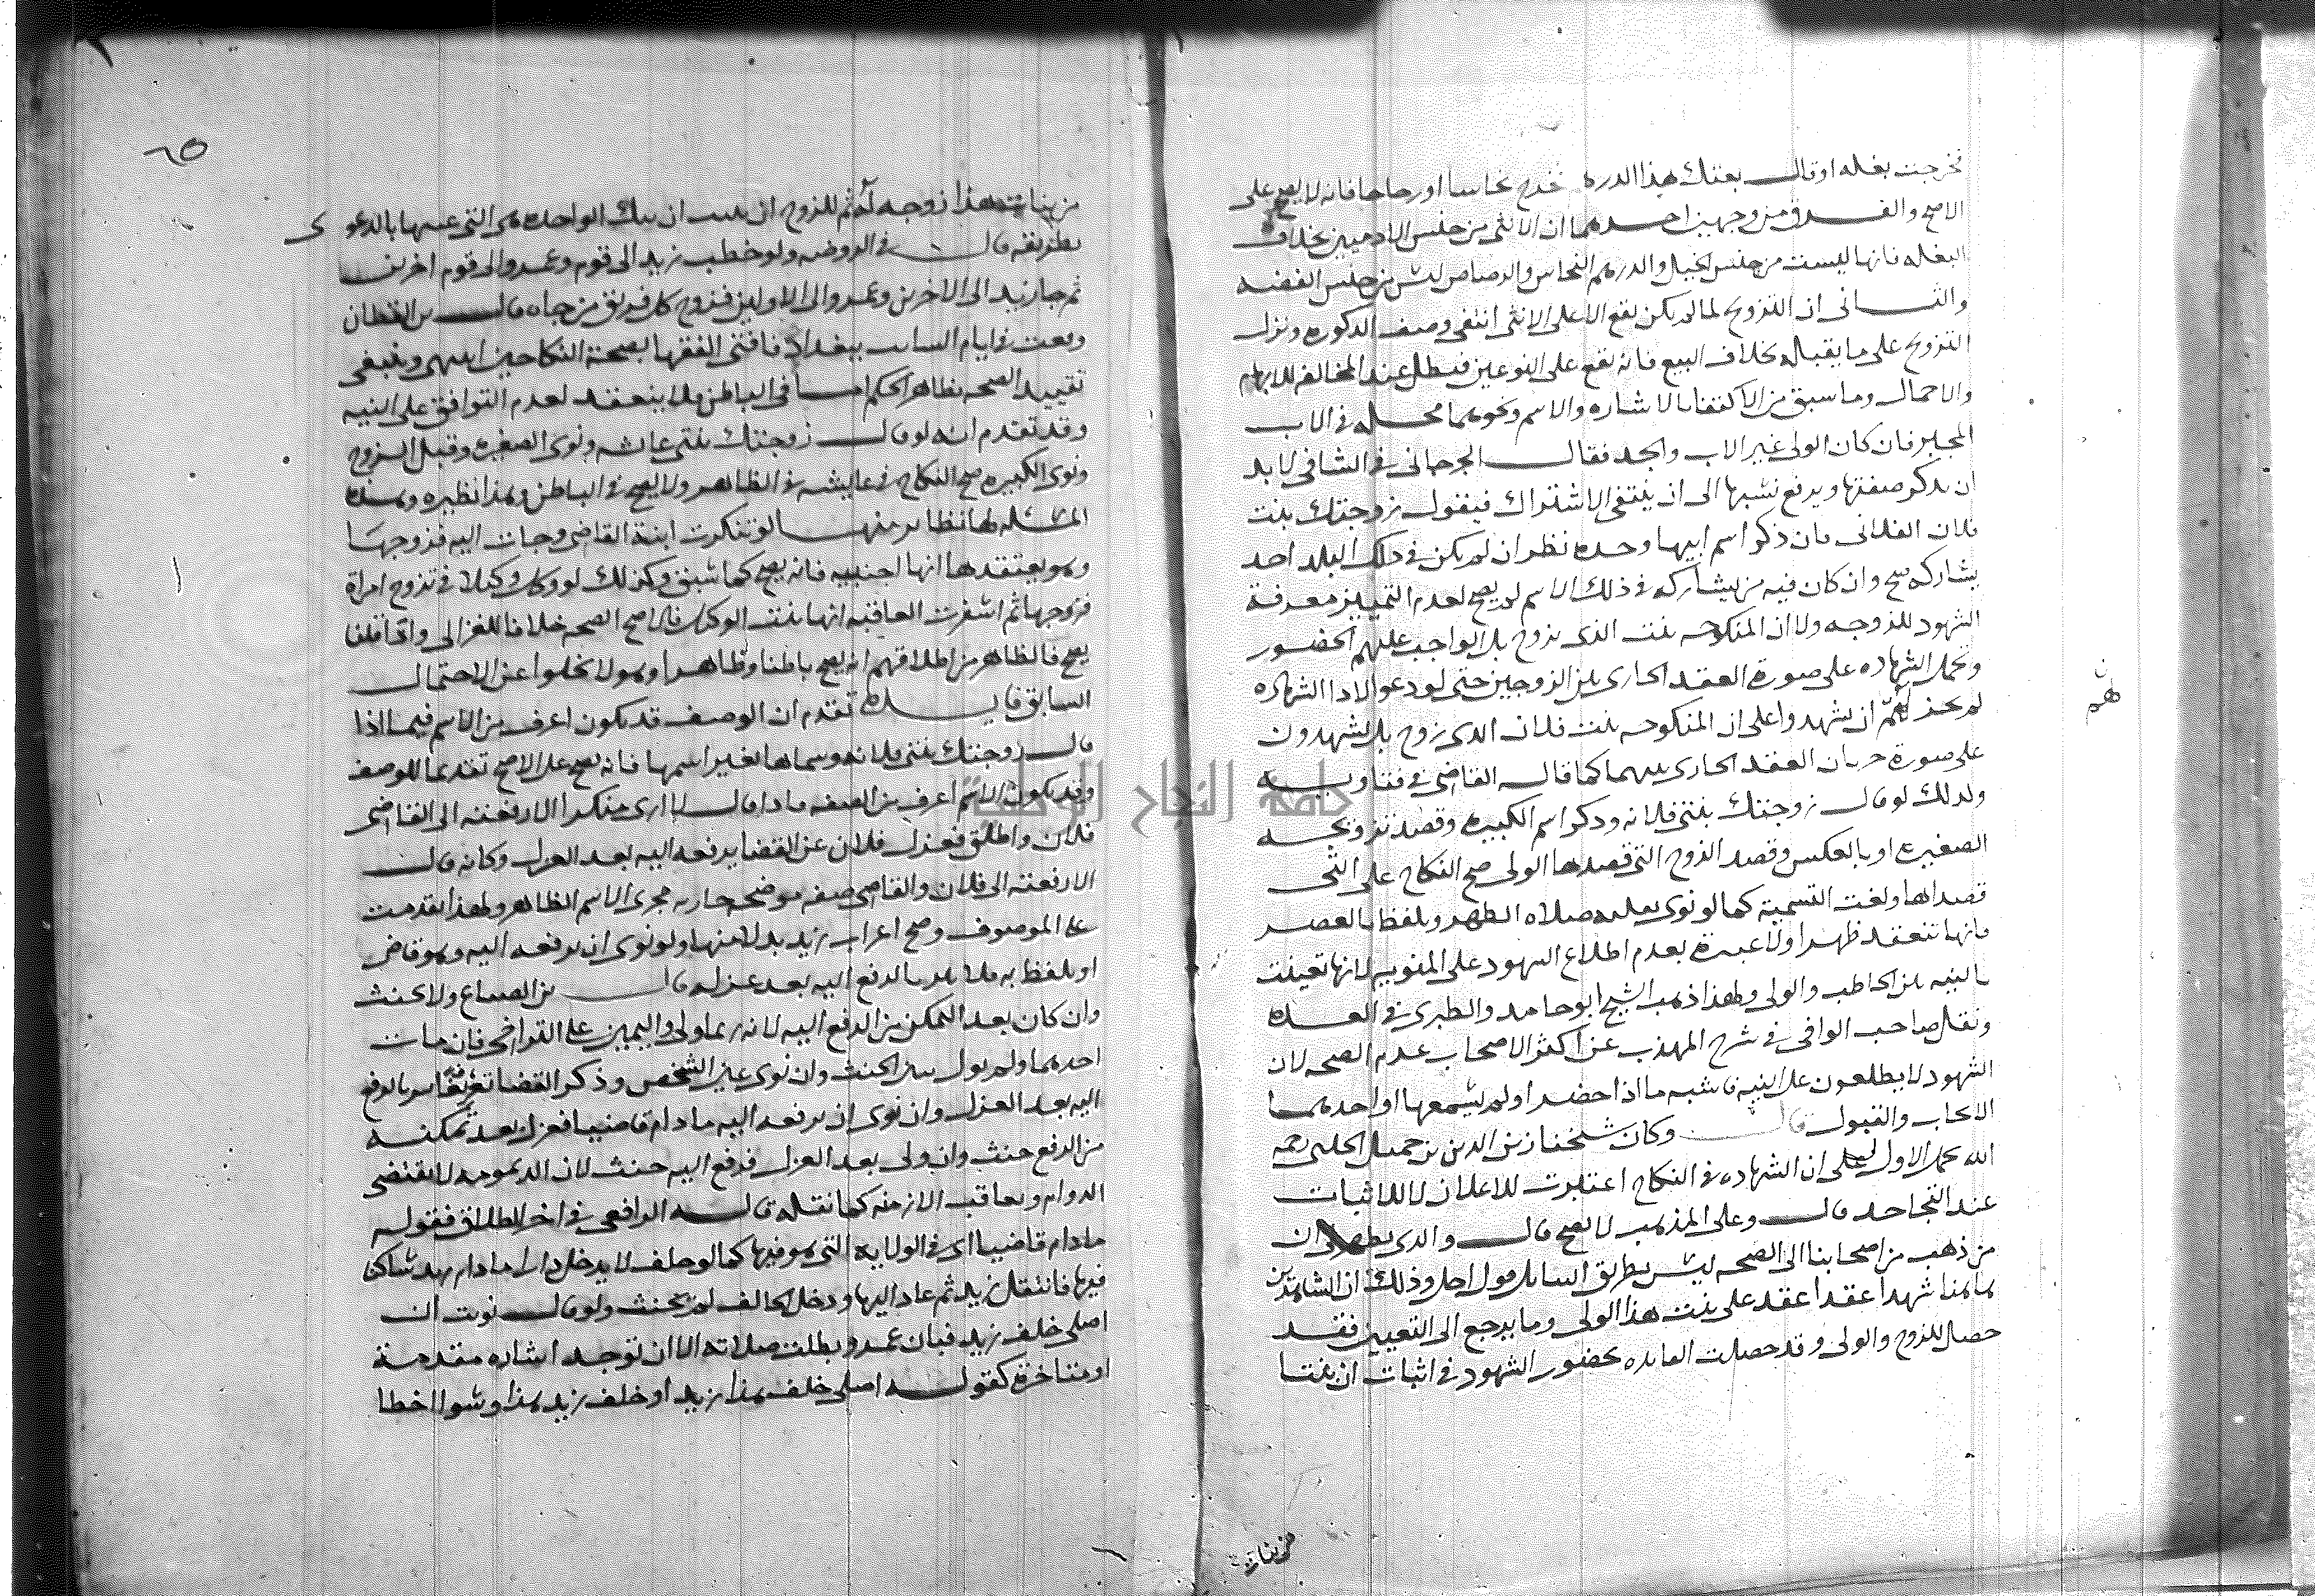 فخرجت بغله او قال بعتك هذا الدرهم فخرج نحاسا او رصاصا فانه لا يصح على
الاصح والفرق من وجهين احدهما ان الانثى من جنس الادميين بخلاف
البغله فانها ليست من جنس الخيل والدرهم النحاس والرصاص ليس من جنس الفضه
والثانى ان التزويج لما لم يكن يقع الا على الانثى انتفى وصف الذكوره ونزل
التزويج على ما يقبله بخلاف البيع فانه يقع على النوعين فبطل عند المخالفه للابهام
والاحمال وما سبق من الاكتفا بالاشاره والاسم ونحوهما محله فى الاب
المجبر فان كان الولى غير الاب والجد فقال الجرجانى فى الشافى لا بد
ان يذكر صفتها ويرفع نسبها الى ان ينتفى الاشتراك فيقول زوجتك بنت
فلان الفلانى فان ذكر اسم ابيها وحده نظر ان لم يكن فى ذلك البلد احد
يشاركه صح وان كان فيه من يشاركه فى ذلك الاسم لم يصح لعدم التمييز معرفة
الشهود للزوجه ولا ان المنكوحه بنت الذى يزوج بل الواجب عليهم الحضور
وتحمل الشهاده على صورة العقد الجارى بين الزوجين حتى لو دعوا لادا الشهاده
لم يجز لهم ان يشهدوا على ان المنكوحه بنت فلان الذى زوج بل يشهدون
على صورة جريان العقد الجارى بينهما كما قال القاضى فى فتاويه
وكذلك لو قال زوجتك بنتى فلانه وذكر اسم الكبيره وقصد تزويجه
الصغيره او بالعكس وقصد الزوج التى قصدها الولى صح النكاح على التى
قصداها ولغت التسمية كما لو نوى بقلبه صلاه الظهر وتلفظ بالعصر
فانها تنعقد ظهرا ولا عبرة بعدم اطلاع الشهود على المنويه لانها تعينت
بالنيه بين الخاطب والولى ولهذا ذهب الشيخ ابو حامد والطبرى فى العده
ونقل صاحب الوافى فى شرح المهذب عن اكثر الاصحاب عدم الصحه لان
الشهود لا يطلعون على النيه فاشبه ما اذا حضرا ولم يسمعها او احدهما
الايجاب والقبول قال وكان شيخنا زين الدين بن جميل الحلبى رحمه
الله يحمل الاول على ان الشهاده فى النكاح اعتبرت للاعلان لا للاثبات
عند التجاحد قال وعلى المذهب لا يصح قال والذى يظهر لى ان
من ذهب من اصحابنا الى الصحه ليس بطريق السايل قول احل وذلك ان الشاهدين
هاهنا شهدا عقدا عقد على بنت هذا الولى وما يرجع الى التعيين فقد
حصل للزوج والولى وقد حصلت الفايده بحضور الشهود فى اثبات ان بنتا
لهم
من بناته
٦٥
من بناته هذا زوجه له ثم للزوج ان يثبت ان تلك الواحده هى التى عينها بالدعوى
بطريقه قال فى الروضه ولو خطب زيد الى قوم وعمرو الى قوم اخرين
ثم جا زيد الى الاخرين وعمرو الى الاولين فزوج كل فريق من جاه قال بن القطان
وقعت فى ايام السايب ببغداد فافتى الفقها بصحة النكاحين انتهى وينبغى
تقييد الصحه بظاهر الحكم اما فى الباطن فلا ينعقد لعدم التوافق على النيه
وقد تقدم انه لو قال زوجتك بنتى عايشه ونوى الصغيره وقبل الزوج
ونوى الكبيره صح النكاح فى عايشه فى الظاهر ولا يصح فى الباطن وهذا نظيره وهذه
المسئله لها نظاير منها لو تنكرت ابنة القاضى وجات اليه فزوجها
وهو يعتقدها انها اجنبيه فانه يصح كما سبق وكذلك لو وكل وكيلا فى تزوج امراة
فزوجها ثم اسفرت العاقبه انها بنت الوكيل فالاصح الصحه خلافا للغزالى واذا قلنا
يصح فالظاهر من اطلاقهم انه يصح باطنا وظاهرا وهو لا يخلوا عن الاحتمال
السابق فايده تقدم ان الوصف قد يكون اعرف من الاسم فيما اذا
قال زوجتك بنتى فلانه وسماها بغير اسمها فانه يصح على الاصح تقديما للوصف
وقد يكون الاسم اعرف من الصفه ما اذا قال لا ارى منكرا الا رفعته الى القاضى
فلان واطلق فعزل فلان عن القضا يرفعه اليه بعد العزل وكانه قال
الا رفعته الى فلان والقاضى صفه موضحه جاريه مجرى الاسم الظاهر ولهذا تقدمت
على الموصوف وصح اعراب زيد بدلا منها ولو نوى ان يرفعه اليه وهو قاض
او تلفظ به فلا يبر بالرفع اليه بعد عزله قال بن الصباغ ولا يحنث
وان كان بعد التمكن من الرفع اليه لانه ربما ولى واليمين على التراخى فان مات
احدهما ولم يول تبين الحنث وان نوى عين الشخص وذكر القضا تعريفا بر بالرفع
اليه بعد العزل وان نوى ان يرفعه اليه ما دام قاضيا فعزل بعد تمكنه
من الرفع حنث وان ولى بعد العزل فرفع اليه حنث لان الديمومه لا تقتضى
الدوام وتعاقب الازمنه كما نقله قاله الرافعى فى اخر الطلاق فقوله
ما دام قاضيا اى فى الولايه التى هو فيها كما لو حلف لا يدخل دارا ما دام زيد ساكنا
فيها فانتقل زيد ثم عاد اليها ودخل الحالف لم يحنث ولو قال نويت ان
اصلى خلف زيد فبان عمرو بطلت صلاته الا ان توجد اشاره مقدمة
او متاخرة كقوله اصلى خلف هذا زيد او خلف زيد هذا وسوا اخطا
جامعة النجاح الوطنية